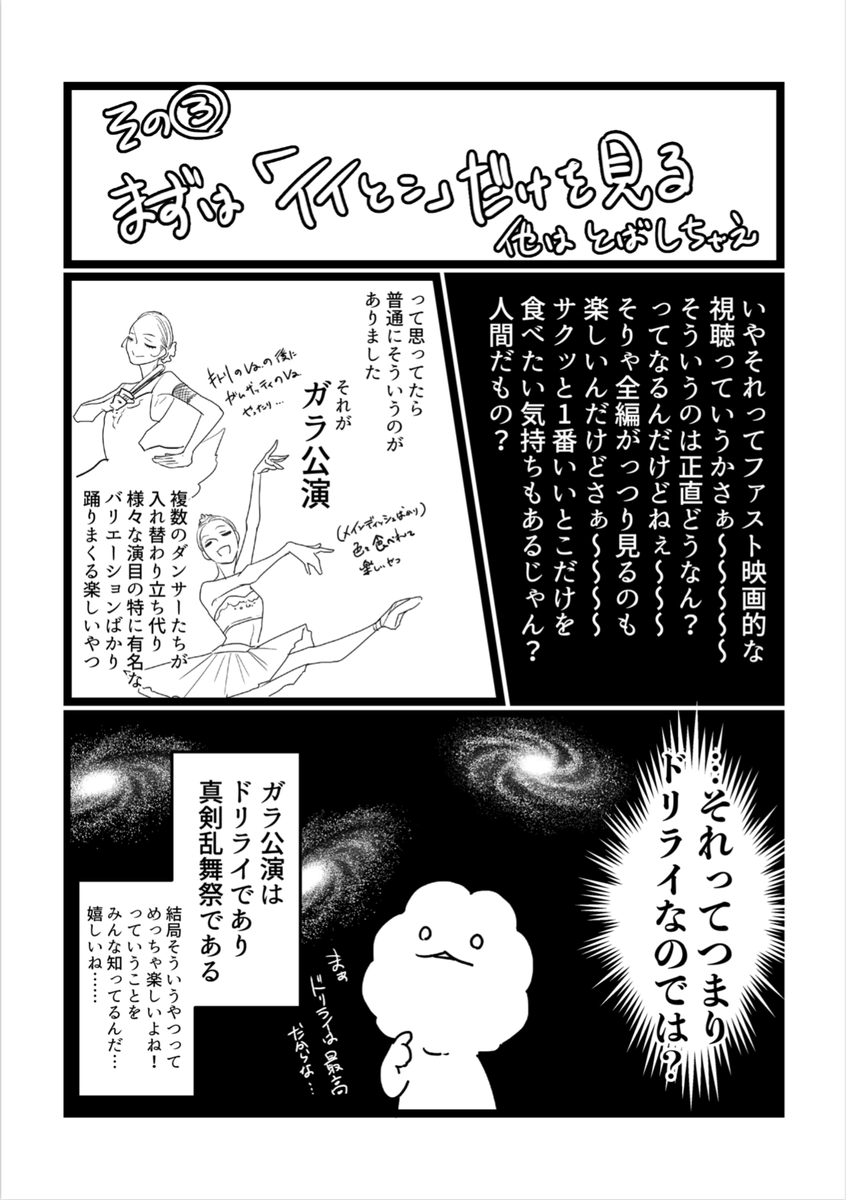 その③
まずは「イイとこ」だけを見る
他はとばしちゃえ
いやそれってファスト映画的な
視聴っていうかさぁ～～～～～
そういうのは正直どうなん？
ってなるんだけどねぇ～～～
そりゃ全編がっつり見るのも
楽しいんだけどさぁ～～～～
サクッと１番いいとこだけを
食べたい気持ちもあるじゃん？
人間だもの？
って思ってたら
普通にそういうのが
ありました
それが
ガラ公演
キトリのVaの後に
ガムザッティのVa
やったり…
(メインディッシュばかり)
色々食べれて
楽しいやつ
複数のダンサーたちが
入れ替わり立ち代り
様々な演目の特に有名な
バリエーションばかり
踊りまくる楽しいやつ
…それってつまり
ドリライなのでは？
まぁ
ドリライは最高
だからな…
ガラ公演は
ドリライであり
真剣乱舞祭である
結局そういうやつって
めっちゃ楽しいよね！
っていうことを
みんな知ってるんだ…
嬉しいね……